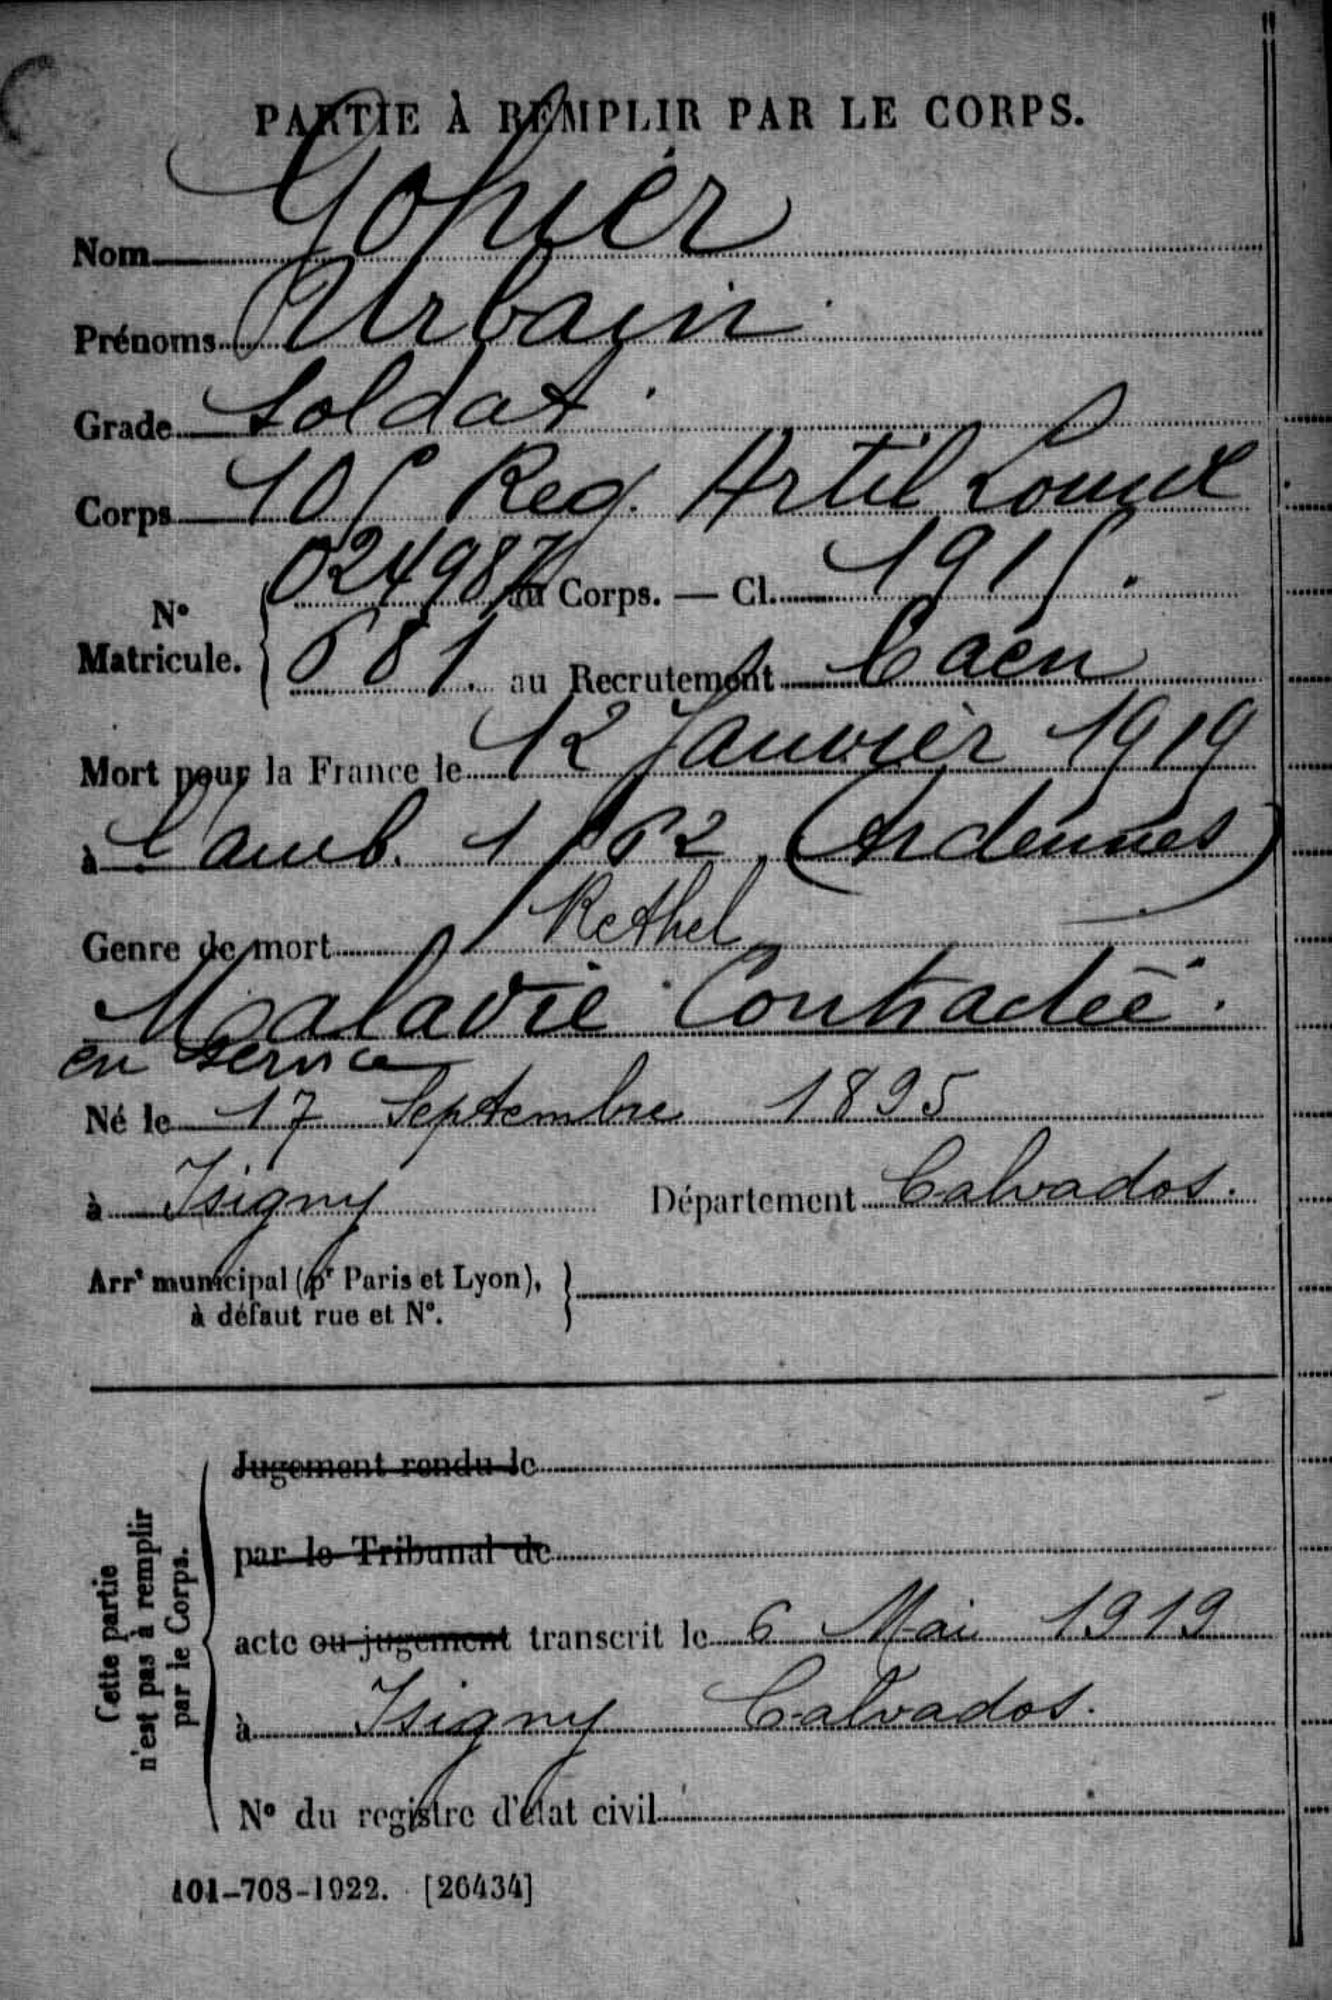 PARTIE À REMPLIR PAR LE CORPS.
Nom Gohier
Prénoms Urbain
Grade Soldat
Corps 105 Reg. Artil Lourde
N° Matricule. 024987 au Corps. — Cl. 1915.
681. au Recrutement Caen
Mort pour la France le 12 Janvier 1919
à l'amb. 1/62 (Ardennes)
Rethel
Genre de mort
Maladie Contractée
en service
Né le 17 Septembre 1895
à Isigny Département Calvados.
Arrt municipal (pr Paris et Lyon),
à défaut rue et N°.
Jugement rendu le
par le Tribunal de
acte ou jugement transcrit le 6 Mai 1919
à Isigny Calvados.
N° du registre d'état civil
Cette partie
n'est pas à remplir
par le Corps.
101-708-1922. [26434]